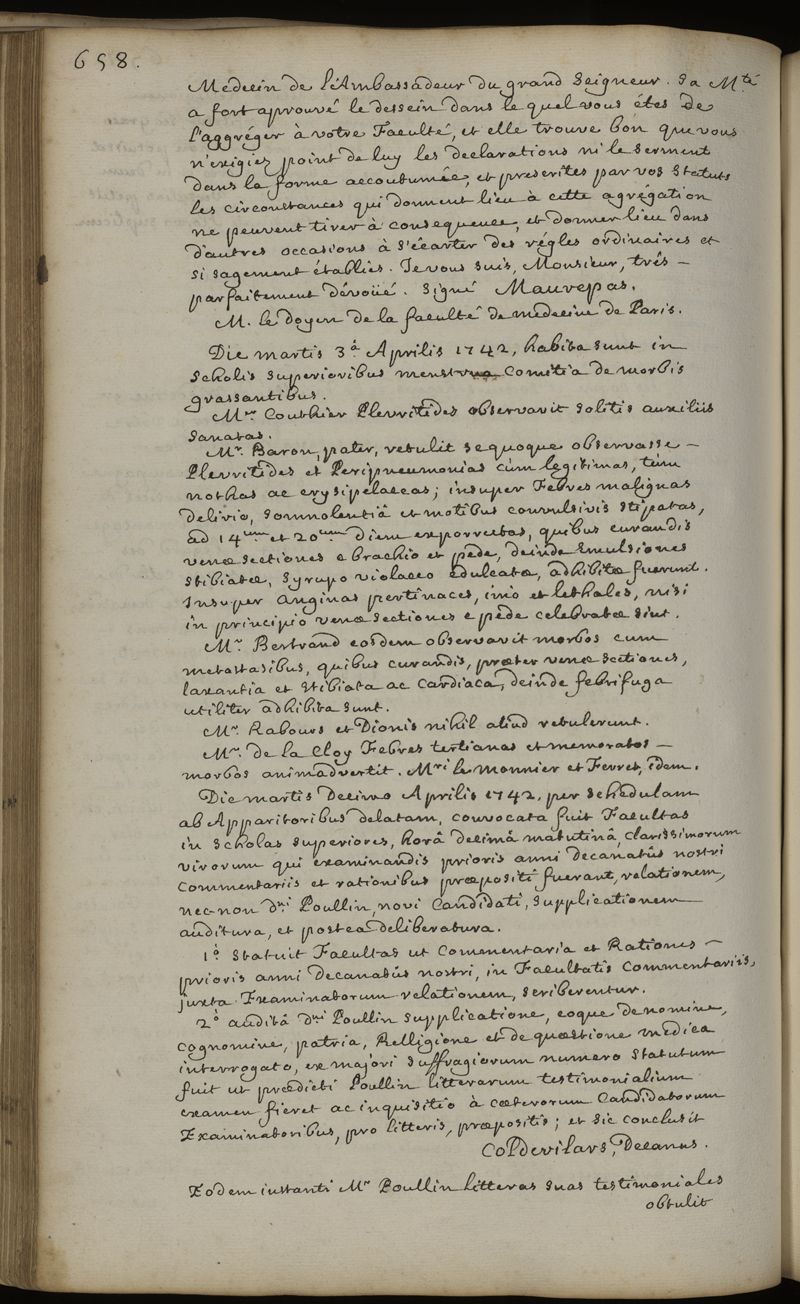 658.
Medecin de l'Ambassadeur du grand Seigneur. Sa M.té
a fort aprouvé le dessein dans le quel vous étes de
l'aggréger à votre Faculté, et elle trouve bon que vous
n'exigiez point de luy les declarations ni le serment
dans la forme accoutumée, et prescrites par vos Statuts
les circonstances qui donnent lieu à cette agrégation
ne peuvent tirer à consequence, et donner lieu dans
d'autres occasions à s'écarter des régles ordinaires et
si sagement établies. Je vous suis, Monsieur, trés –
parfaitement dévoüé. Signé Maurepas.
M. le doyen de la faculté de medecine de Paris.
Die martis 3.â Aprilis 1742, habita sunt in
Scholis superioribus menstrua Comitia de morbis
grassantibus.
M.er Couthier Pleuritides observavit solitis auxiliis
sanatas.
M.r Baron, pater, retulit se quoque observasse –
Pleuritides et Peripneumonias cùm legitimas, tùm
nothas ac erysipelaceas; insuper Febres malignas
delirio, somnolentiâ et motibus convulsivis stipatas,
ad 14.um et 20.um diem exporrectas, quibus curandis
venæ sectiones e brachio et pede, deinde Emulsiones
stibiatæ, syrupo violaceo edulcatæ, adhibitæ fuerunt.
Insuper anginas pertinaces, imò et lethales, nisi
in principio venæ sectiones e pede celebratæ sint.
M.r Bertrand eosdem observavit morbos cum
metastasibus, quibus curandis, præter venæ sectiones,
laxantia et stibiata ac Cardiaca, deinde febrifuga
utiliter adhibita sunt.
M.r Rabours et Dionis nihil aliud retulerunt.
M.r de la Cloy Febres tertianas et memoratos –
morbos animadvertit. M.ri le Monnier et Ferret, idem.
Die martis Decimo Aprilis 1742, per schedulam
ab Apparitoribus delatam, convocata fuit Facultas
in Scholas superiores, horâ decimâ matutinâ, clarissimorum
virorum qui examinandis prioris anni Decanatûs nostri
Commentariis et rationibus præpositi fuerant, relationem,
nec non D.ni Poullin, novi Candidati, supplicationem
auditura, et postea deliberatura.
1.o Statuit Facultas ut Commentaria et Rationes –
prioris anni Decanatûs nostri, in Facultatis Commentariis,
juxta Examinatorum relationem, scriberentur.
2.o audità D.ni Poullin supplicatione, eoque de nomine,
cognomine, patria, Relligione et de quæstione medica
interrogato, ex majori suffragiorum numero Statutum
fuit ut prædicti Poullin litterarum testimonialium
examen fieret ac inquisitio à cæterorum Candidatorum
Examinatoribus, pro litteris, præpositis; et sic conclusit
Col Devilars, Decanus.
Eodem instanti M.r Poullin litteras suas testimoniales
obtulit